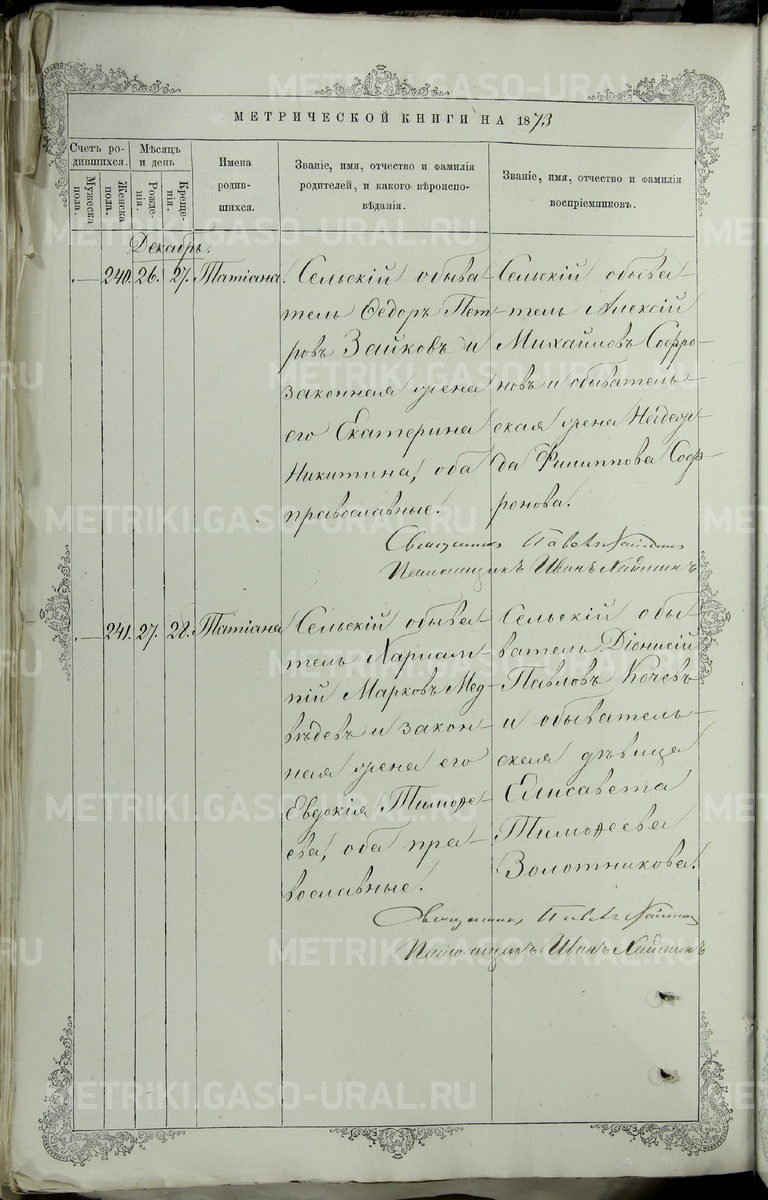 МЕТРИЧЕСКОЙ КНИГИ НА 1873
Счетъ ро-
дившихся.
Мѣсяцъ
и день
Мужеска
пола.
Женска
пола.
Рожде-
нія.
Креще-
нія.
Имена
родив-
шихся.
Званіе, имя, отчество и фамилія
родителей, и какого вѣроиспо-
вѣданія.
Званіе, имя, отчество и фамилія
воспріемниковъ.
Декабрь.
— 240. 26. 27. Татіана.
Сельскій обыва-
тель Ѳедоръ Пет-
ровъ Зайковъ и
законная жена
его Екатерина
Никитина, оба
православные.
Сельскій обыва-
тель Алексій
Михайловъ Софро-
новъ и обыватель-
ская жена
да Филиппова Соф-
ронова.
Священникъ Павелъ
Помощникъ Иванъ
— 241. 27. 28. Татіана
Сельскій обыва-
тель Харлам-
пій Марковъ Мед-
вѣдевъ и закон-
ная жена его
Евдокія Тимоѳе-
ева, оба пра-
вославные.
Сельскій обы-
ватель Діонисій
Павловъ Кочевъ
и обыватель-
ская дѣвица
Елисавета
Тимоѳеева
Золотникова.
Священникъ Павелъ
Помощникъ Иванъ
METRIKI.GASO-URAL.RU